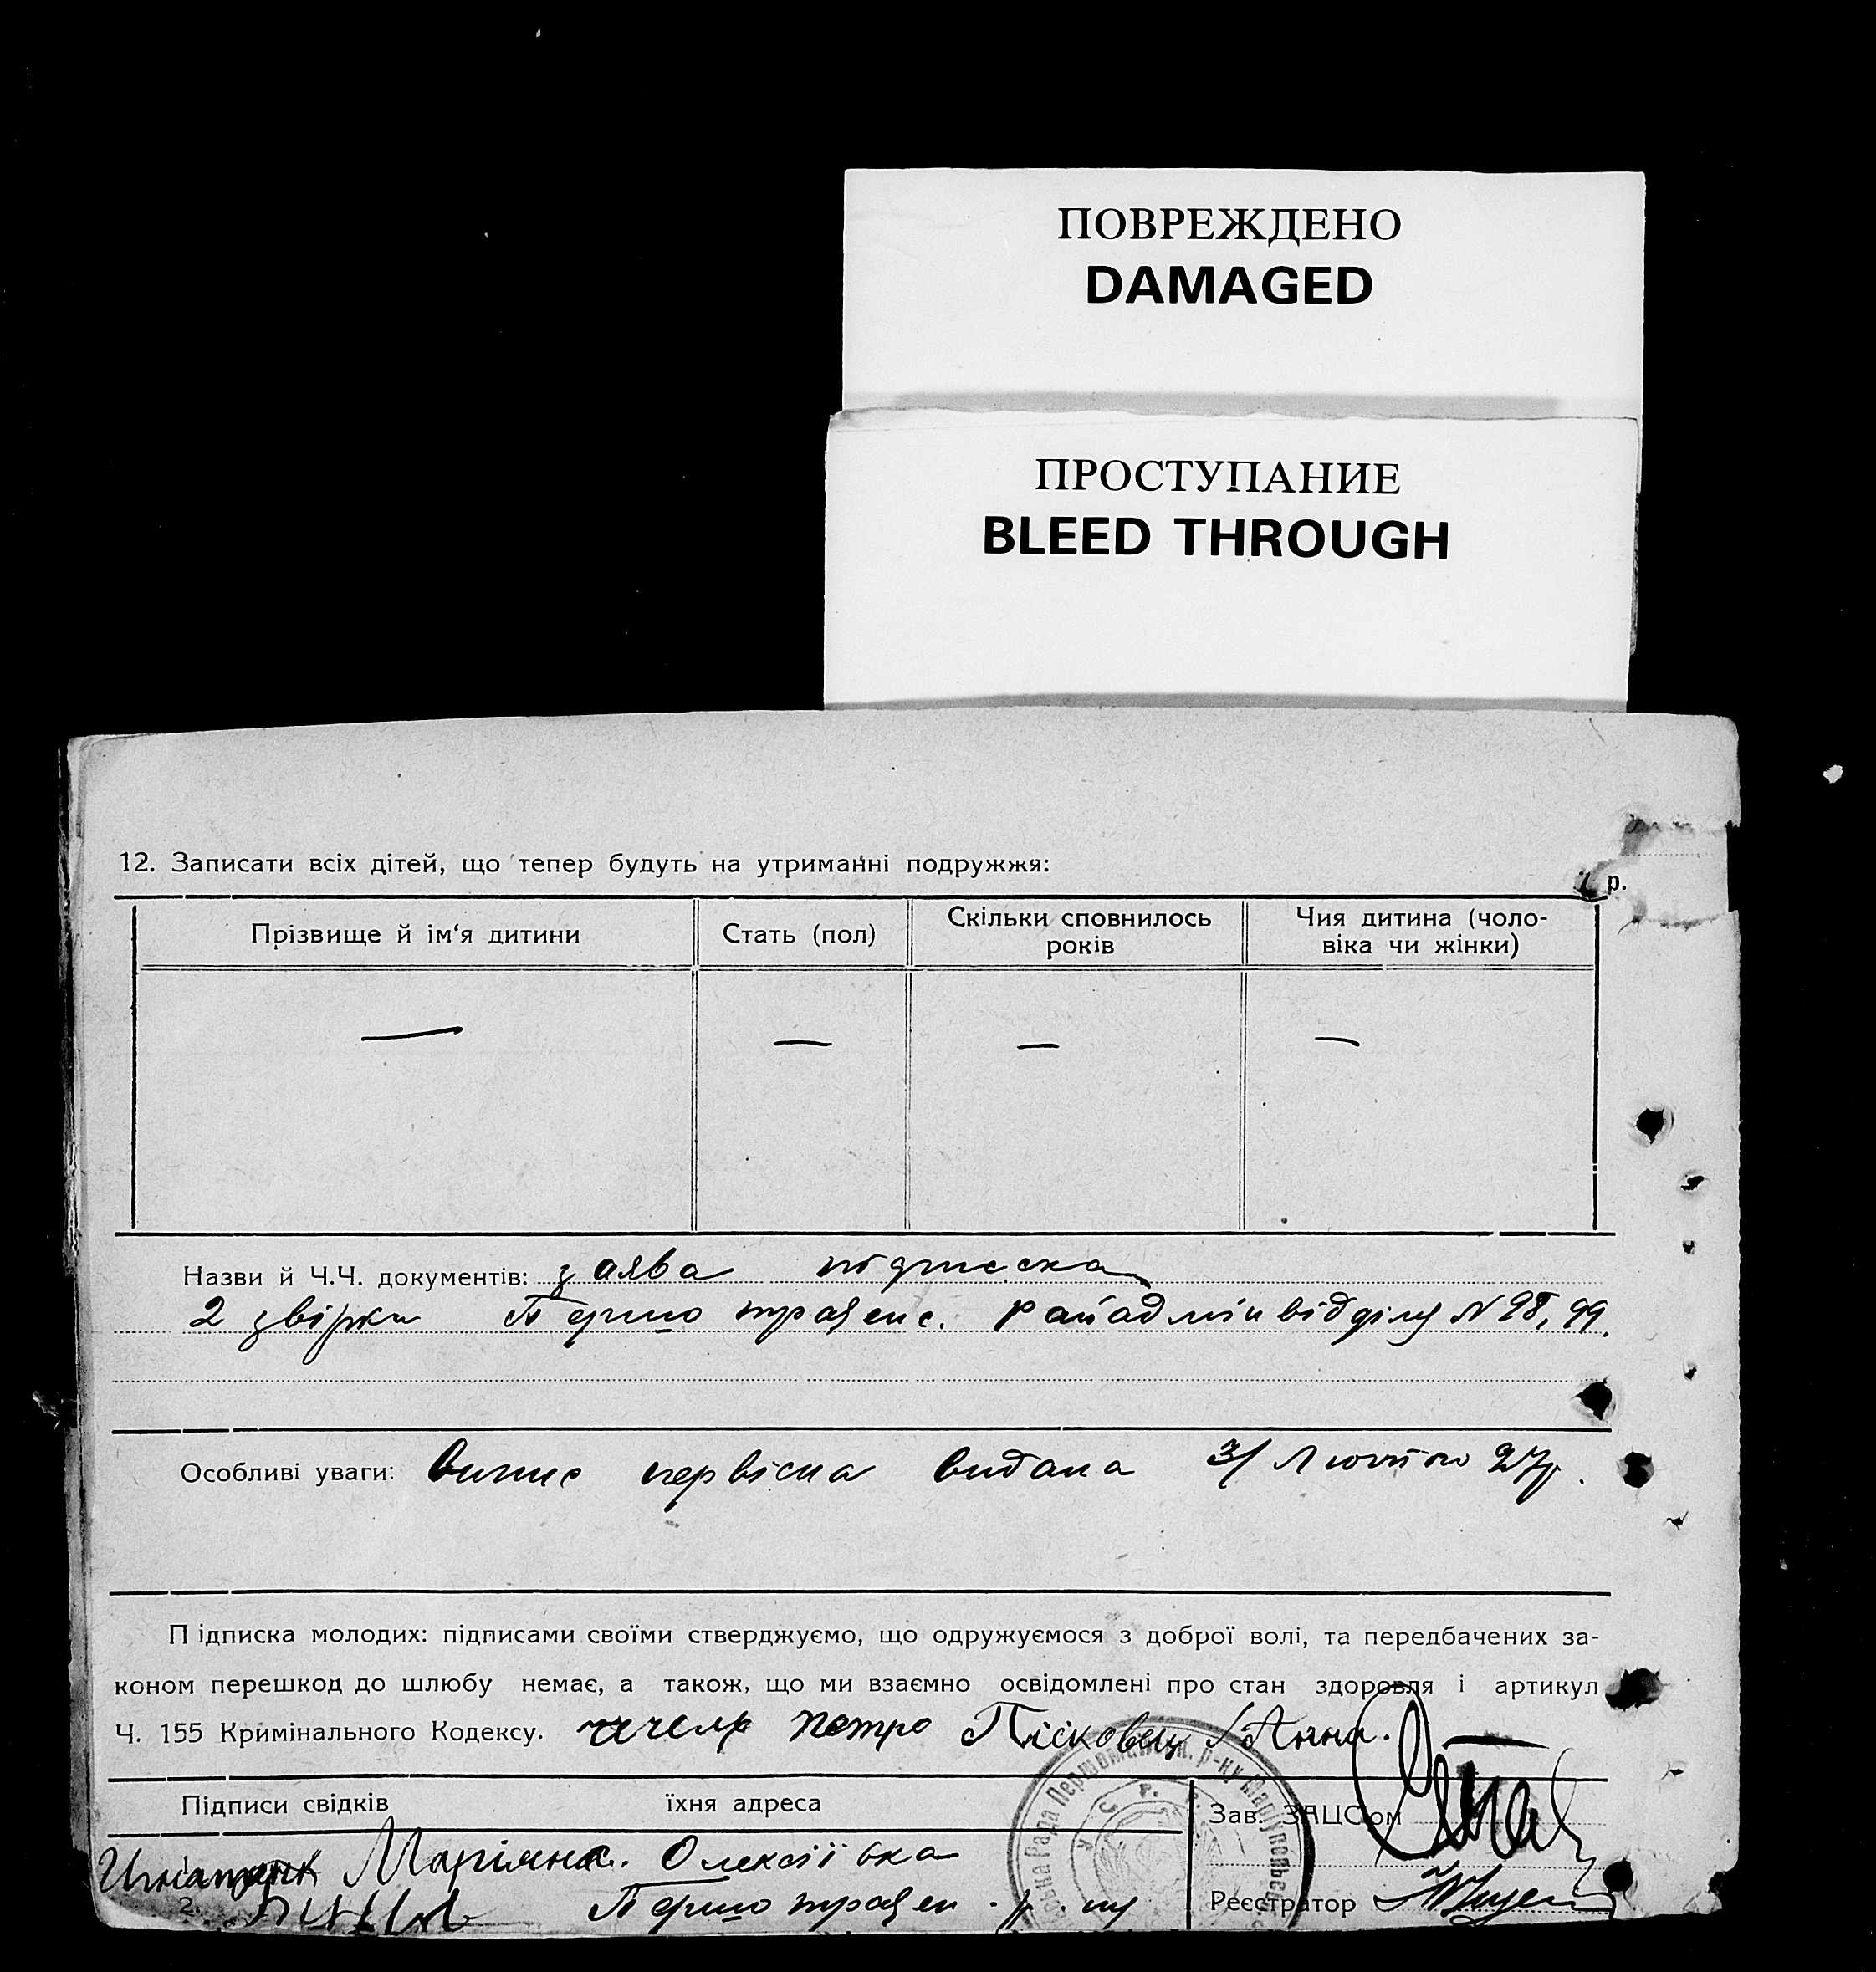 ПОВРЕЖДЕНО
DAMAGED
ПРОСТУПАНИЕ
BLEED THROUGH
12. Записати всіх дітей, що тепер будуть на утриманні подружжя:
р.
Прізвище й ім'я дитини
Стать (пол)
Скільки сповнилось
років
Чия дитина (чоло-
віка чи жінки)
— — — —
Назви й Ч.Ч. документів: заява підписка
2 звірки Першотравенс. райадмінвідділу N 98, 99.
Особливі уваги: випис первісна видана 3/ Лютого 27р.
Підписка молодих: підписами своїми стверджуємо, що одружуємося з доброї волі, та передбачених за-
коном перешкод до шлюбу немає, а також, що ми взаємно освідомлені про стан здоровля і артикул
Ч. 155 Кримінального Кодексу. Петро Пісковец Анна.
Підписи свідків їхня адреса
Зав. ЗАЦСом
Маріянка. Олексіївка
2. Першотравен. р. ну
Реєстратор
Рада Першомайськ. р-ну Маріупольс
У. С. Р. Р.